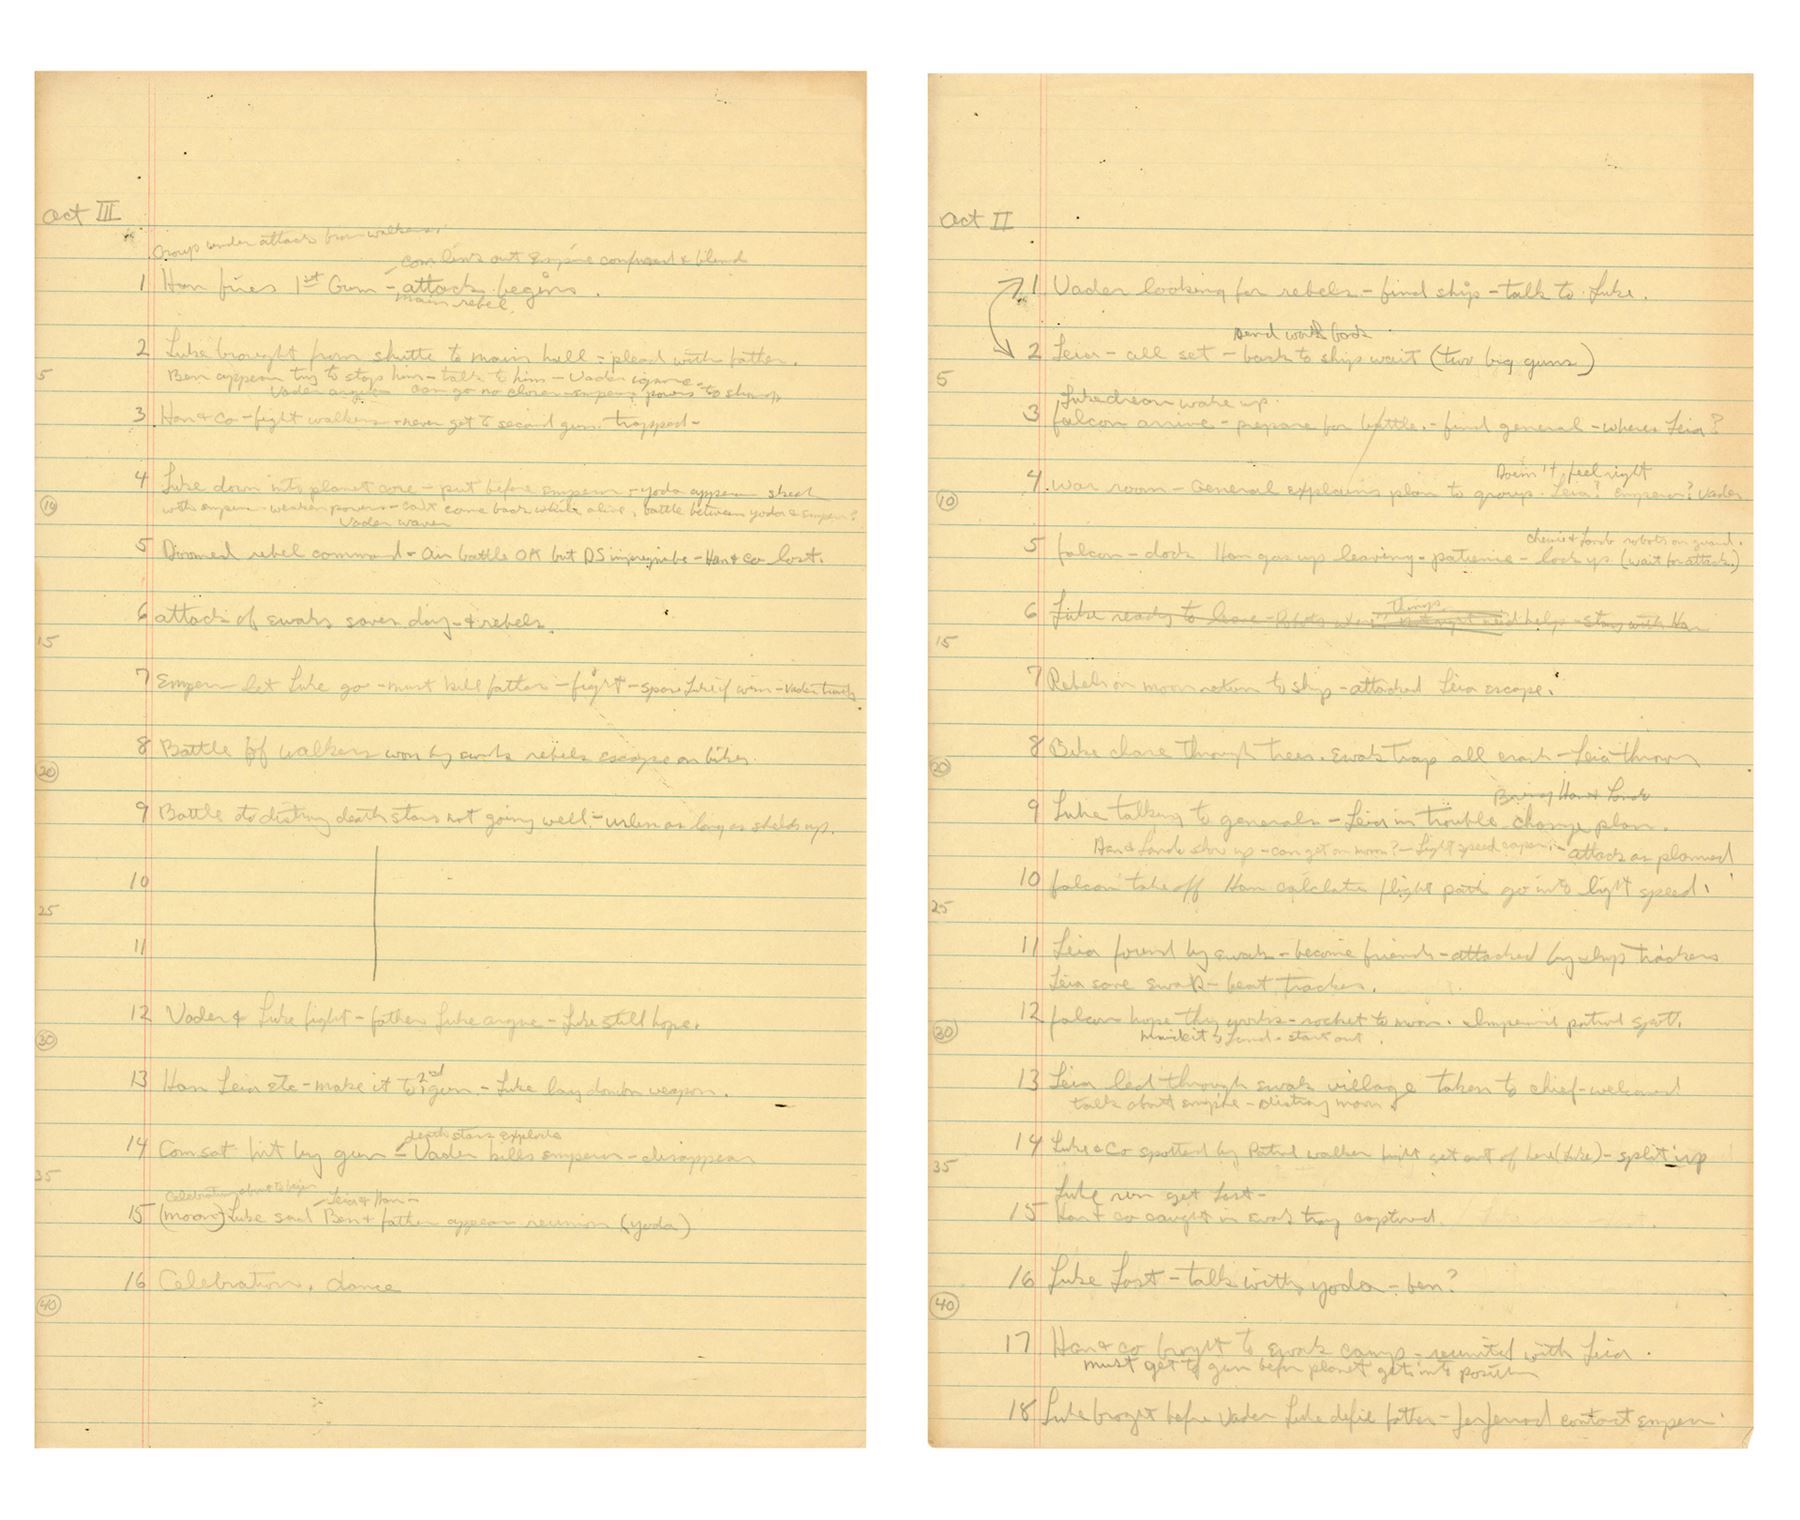 Act III
Group under attack from walkers.
com links out Empire confused & blind
1 Han fires 1st Gun – attack begins.
main rebel
2 Luke brought from shuttle to main hall – plead with father.
5
Ben appear try to stop him – talk to him – Vader ignore –
Vader can go no closer – emperor powers to strong
3 Han & Co – fight walkers – never get to second gun. trapped –
4 Luke down into planet core – put before emperor – yoda appear
10
with emperor weaken powers – can't come back while alive, battle between yoda & emperor?
Vader waver
5 Doomed rebel command – Air battle OK but DS – Han & co lost.
6 attack of ewaks saves day – & rebels.
15
7 Emperor let Luke go – must kill father – fight – spare Luke if win – Vader
8 Battle of walkers won by ewaks rebels escape on bikes.
20
9 Battle to distroy death stars not going well – as long as shelds up.
10
25
11
12 Vader & Luke fight – father Luke argue – Luke still hope.
30
13 Han Leia etc – make it to 2nd gun. – Luke lay down weapon.
death stars explode
14 Comsat hit by gun – Vader kills emperor – disappear
35
Celebration about to begin
– Leia & Han –
15 (moon) Luke sad Ben & father appear reunion (yoda)
16 Celebration. dance
40
Act II
1 Vader looking for rebels – find ship – talk to Luke.
Send back
2 Leia – all set – back to ships wait (two big guns)
5
Luke dream wake up.
3 falcon arrive – prepare for battle. – find general – wheres Leia?
Doesn't feel right
4 war room – General explains plan to group. Leia? emperor? Vader
10
chewie & Lando robots on guard.
5 falcon – dock Han gas up leaving – patience – lock up (wait for attack.)
things
6 Luke ready to leave – Robots help – stay with Han
15
7 Rebels on moon return to ship – attacked Leia escape.
8 Bike chase through trees. Ewaks trap all crash – Leia thrown
20
Bring Han & Lando
9 Luke talking to generals – Leia in trouble change plan.
Han & Lando show up – can get on moon? – Light speed – attack as planned
10 falcon take off Han calclate flight path go into light speed.
25
11 Leia found by ewak – become friends – attacked by ship trackers
Leia save ewak – beat tracker.
12 falcon hope this works – rocket to moon. Imperial patrol spot.
30
make it to Land – start out.
13 Leia led through ewak village taken to chief – welcomed
talk about empire – distroy moon.
14 Luke & Co spotted by Patrol walker get out of here (Luke) – split up
35
Luke run get lost –
15 Han & co caught in ewak trap captured.
16 Luke Lost – talk with yoda – ben?
40
17 Han & co broght to ewak camp – reunited with Leia.
must get to gun before planet gets into position
18 Luke broght before Vader Luke defie father – Jerjerrod contact emperor.